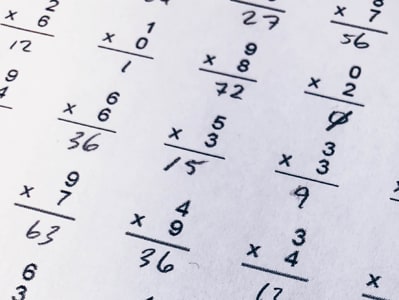 2
× 6
12
27
8
× 7
56
1
× 0
1
9
× 8
72
0
× 2
0
9
4
6
× 6
36
5
× 3
15
3
× 3
9
9
× 7
63
4
× 9
36
3
× 4
12
6
3
×